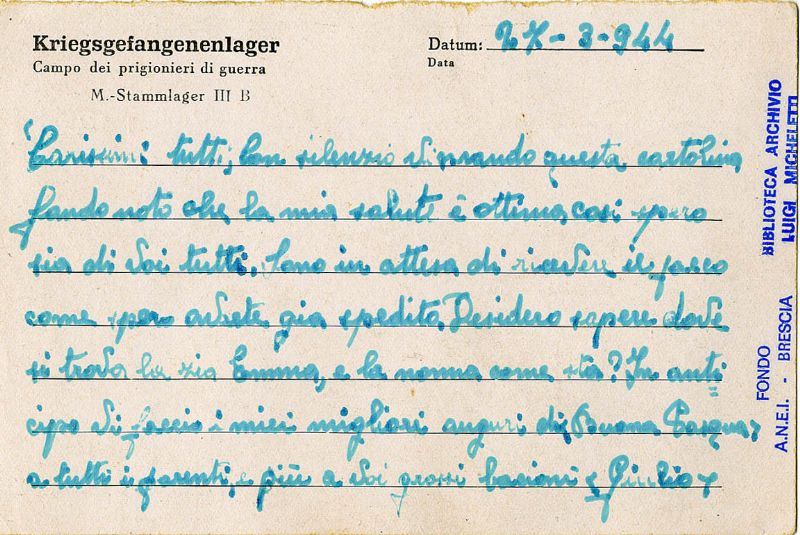 Kriegsgefangenenlager
Campo dei prigionieri di guerra
M.-Stammlager III B
Datum: 27-3-944
Data
Carissimi tutti, Con silenzio Vi mando questa cartolina
facendo noto che la mia salute è ottima, così spero
sia di Voi tutti. Sono in attesa di ricevere il pacco
come spero avrete già spedito. Desidero sapere dove
si trova la zia Emma, e la nonna come sta? In anti
cipo Vi faccio i miei migliori auguri di Buona Pasqua,
a tutti i parenti, e più a Voi grossi bacioni Giulio
BIBLIOTECA ARCHIVIO
LUIGI MICHELETTI
FONDO
A.N.E.I. - BRESCIA